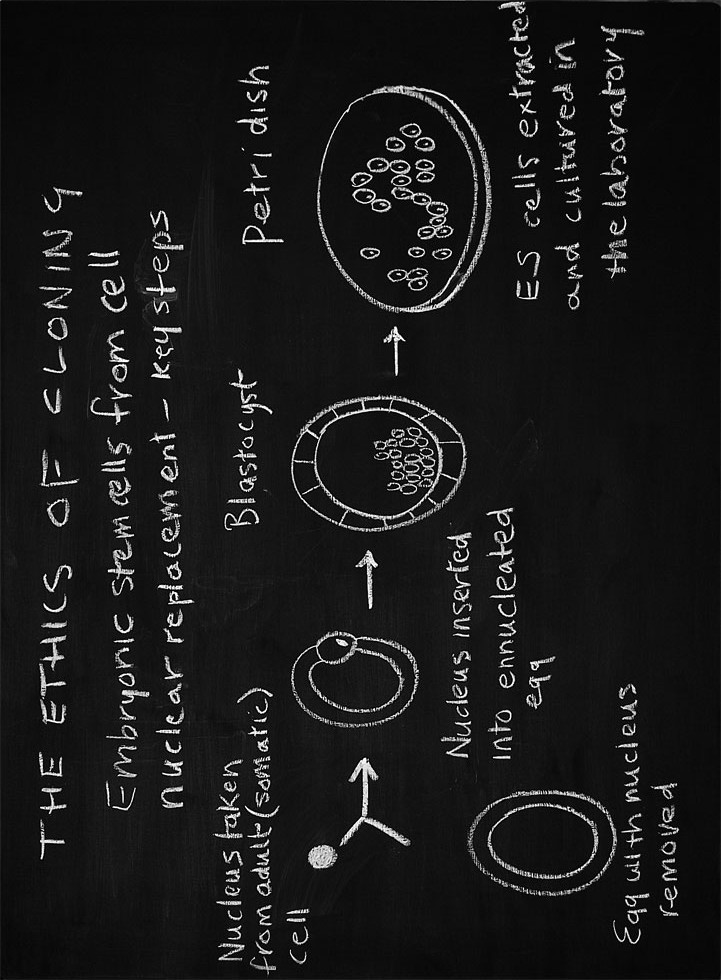 THE ETHICS OF CLONING
Embryonic stem cells from cell
nuclear replacement - key steps
Nucleus taken
from adult (somatic)
cell
Egg with nucleus
removed
Nucleus inserted
into ennucleated
egg
Blastocyst
Petri dish
ES cells extracted
and cultured in
the laboratory